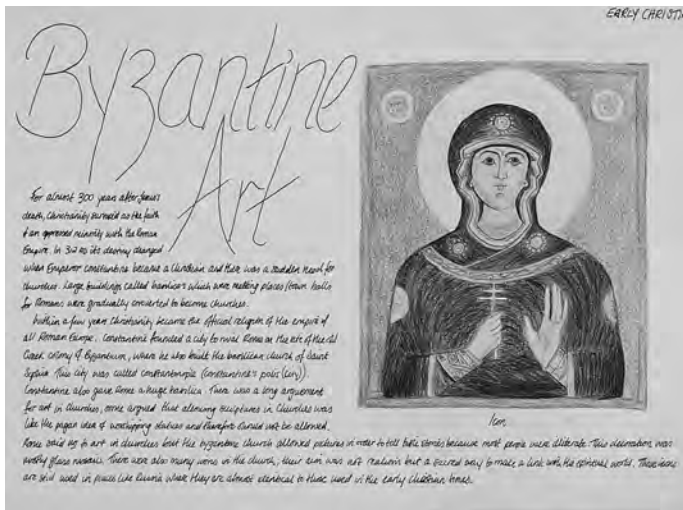 EARLY CHRISTI
Byzantine
Art
For almost 300 years after Jesus's
death, Christianity survived as the faith
of an oppressed minority with the Roman
Empire. In 312 AD its destiny changed
when Emperor Constantine became a Christian and there was a sudden need for
churches. Large buildings called basilica's which were meeting places/town halls
for Romans were gradually converted to become churches.
Within a few years Christianity became the official religion of the empire of
all Roman Europe. Constantine founded a city to rival Rome on the site of the old
Greek colony of Byzantium, where he also built the basilican church of Saint
Sophia. This city was called Constantinople (Constantine's polis (city)).
Constantine also gave Rome a huge basilica. There was a long arguement
for art in churches, some argued that allowing sculptures in churches was
like the pagan idea of worshipping statues and therefore should not be allowed.
Rome said to art in churches but the byzantine church allowed pictures in order to tell bible stories because most people were illiterate. This decoration was
mostly glass mosaics. There were also many icons in the church, their aim was not realism but a sacred way to make a link with the spiritual world. These icons
are still used in places like Russia where they are almost identical to those used in the early Christian times.
Icon